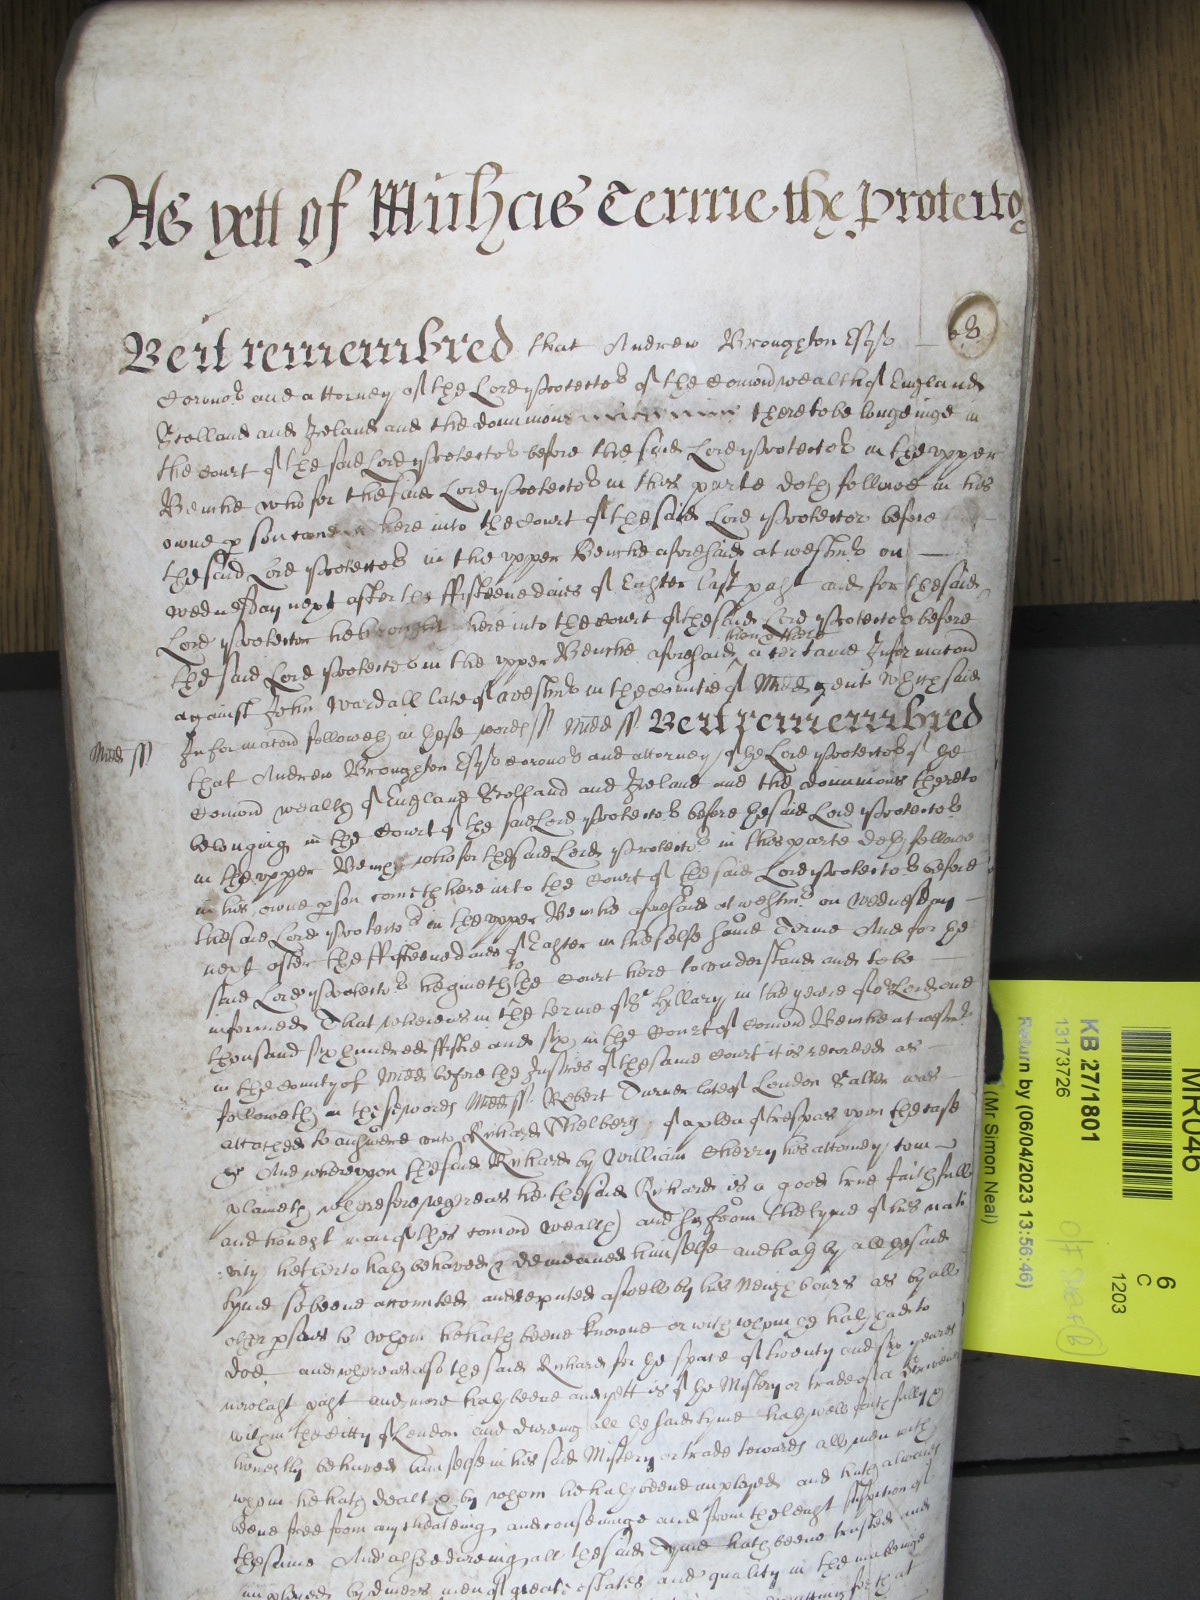 As yett of Michas Terme the Protecto
Beit remembred that Andrew Broughton Esqr
Coronor and attorney of the Lord Protector of the Comonwealth of England
Scotland and Ireland and the dominions thereto belongeinge in
the Court of the said Lord Protector before the said Lord Protector in the upper
Benche who for the said Lord Protector in this parte doth followe in his
owne pson come here into the Court of the said Lord Protector before
the said Lord Protector in the upper Benche aforesaid at westmr on
wednesday next after the ffifteene daies of Easter last past and for the said
Lord Protector he brought here into the Court of the said Lord Protector before
then & there
the said Lord Protector in the upper Benche aforesaid a certaine Informacon
against John Wardall late of westmr in the countie of Midd gent which said
Midd ss Informacon followeth in these words ss Midd ss Beit remembred
that Andrew Broughton Esqr Coronor and attorney of the Lord Protector of the
Comon wealth of England Scotland and Ireland and the dominions thereto
belonging in the Court of the said Lord Protector before the said Lord Protector
in the upper Bench who for the said Lord Protector in this parte doth followe
in his owne pson cometh here into the Court of the said Lord Protector before
the said Lord Protector in the upper Benche aforesaid at westmr on Wednesday
next after the ffifteene daies of Easter in the selfe same Terme And for the
said Lord Protector he giveth to the Court here to understand and to be
informed That whereas in the terme of St Hillary in the yeare of or Lord one
thousand six hundred ffiftie and six in the Court of Comon Benche at westmr
in the County of Midd before the Justices of the same Court it is recorded as
followeth in these words Midd ss Robert Turner late of London Salter was
attached to answere unto Richard Shelbery of a plea of trespas upon the case
&c And whereupon the said Richard by William Cherry his attorney com
plaineth wherefore whereas he the said Richard is a good true faithfull
and honest man of this comon wealth and hath from the tyme of his nati
vity hetherto hath behaved & demeaned himselfe and hath by all the said
tyme so beene accompted and reputed aswell by his Neighbours as by all
other psons to whom he hath beene knowne or with whom he hath had to
doe and whereas also the said Richard for the space of twenty and six yeares
now last past and more hath beene and yett is of the Mistery or trade of a
within the Citty of London and dureing all the said tyme hath well faithfully &
honestly behaved himselfe in his said Mistery or trade towards all men with
whom he hath dealt & by whom he hath beene imployed and hath alwaies
beene free from any cheateing and couseninge and from the least suspition of
the same And also dureing all the said Tyme hath beene trusted and
imployed by divers men of great estates and quality in the makeinge
for that
MR046
6
C
1203
KB 27/1801
13173726
Return by (06/04/2023 13:56:46)
(Mr Simon Neal)